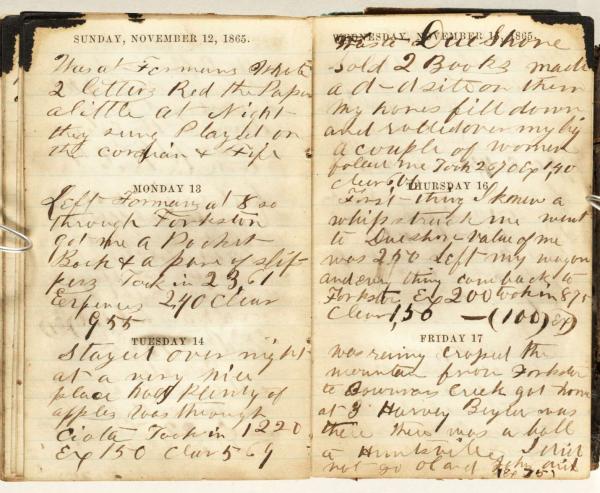 SUNDAY, NOVEMBER 12, 1865.
Was at Formans Wrote
2 letters Red the Paper
a little at Night
they sung Played on
the cordian & Fife
MONDAY 13
Left Formans at 8 so
through Forkston
got me a Pocket
Book & a pare of slip
pers Took in 23,61
Expences 240 Clear
955
TUESDAY 14
Stayed over night
at a very nice
place had Plenty of
apples was through
Took in 1220
Ex 150 Clar 569
WEDNESDAY, NOVEMBER 15, 1865.
Was a Dueshore
Sold 2 Books made
a d-dsite on them
my horse fill down
and rolled over my big
a couple of women
me Took 2670 Ex 1,40
Clear
THURSDAY 16
First thing I knew a
whip struck me went
to Dueshore value of me
was 250 left my wagon
and evry thing com back to
Forkston Ex 200 took in 875
Clear 1,50 — (100) Ex)
FRIDAY 17
was rainy crosed the
mountain from Forkston
to Bowmans Creek got home
at 3 Harvey was
there there was a ball
a Huntsville I did
not go and John did